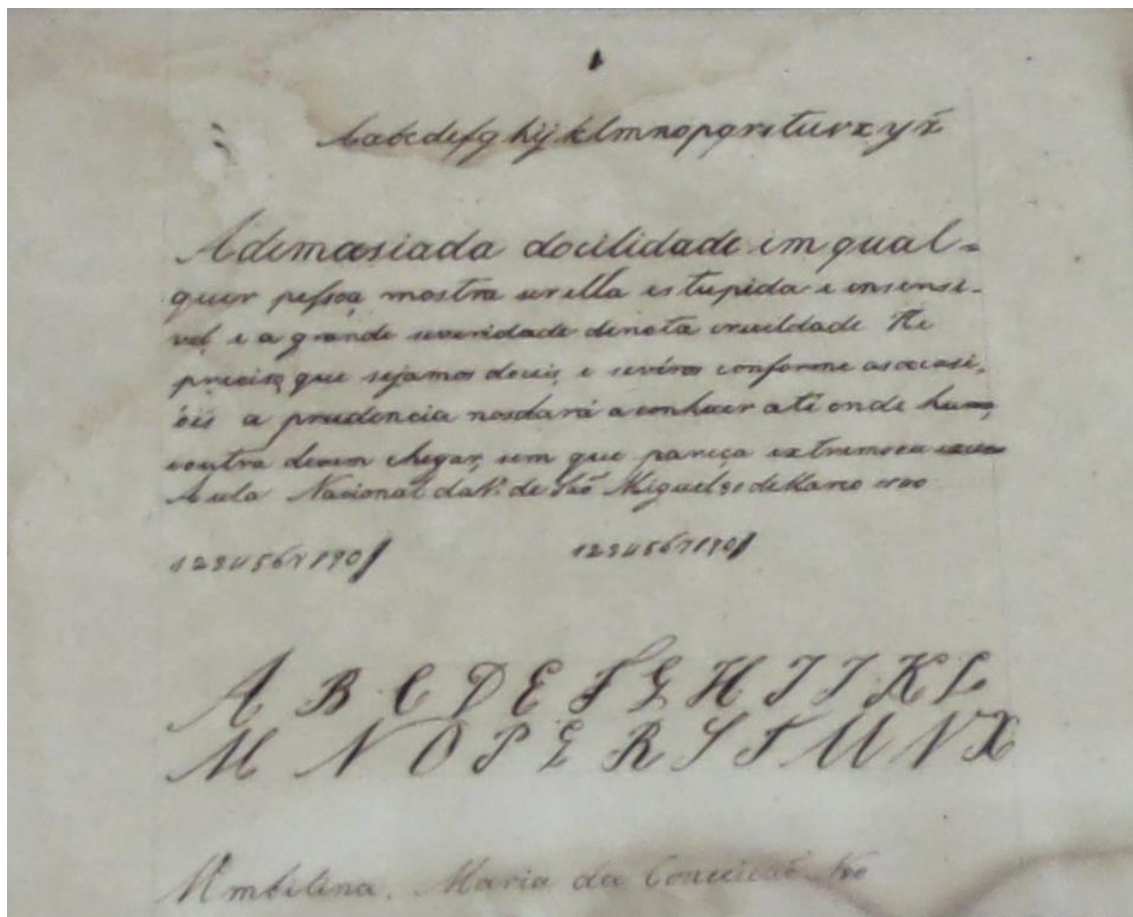 Aabcdefghijklmnopqrstuvxyz
A demasiada docilidade em qual=
quer pessoa, mostra ser ella estupida e insensi-
vel, e a grande severidade denota crueldade He
preciso, que sejamos doceis, e sevéros conforme as ocasi-
ões a prudencia nos dará a conhecer até onde huma,
e outra devem chegar, sem que pareça extremo
Aula Nacional da Vª de São Miguel 30 de Março
1234567890
1234567890
A B C D E F G H I J K L
M N O P Q R S T U V X
Maria da Conceicaõ